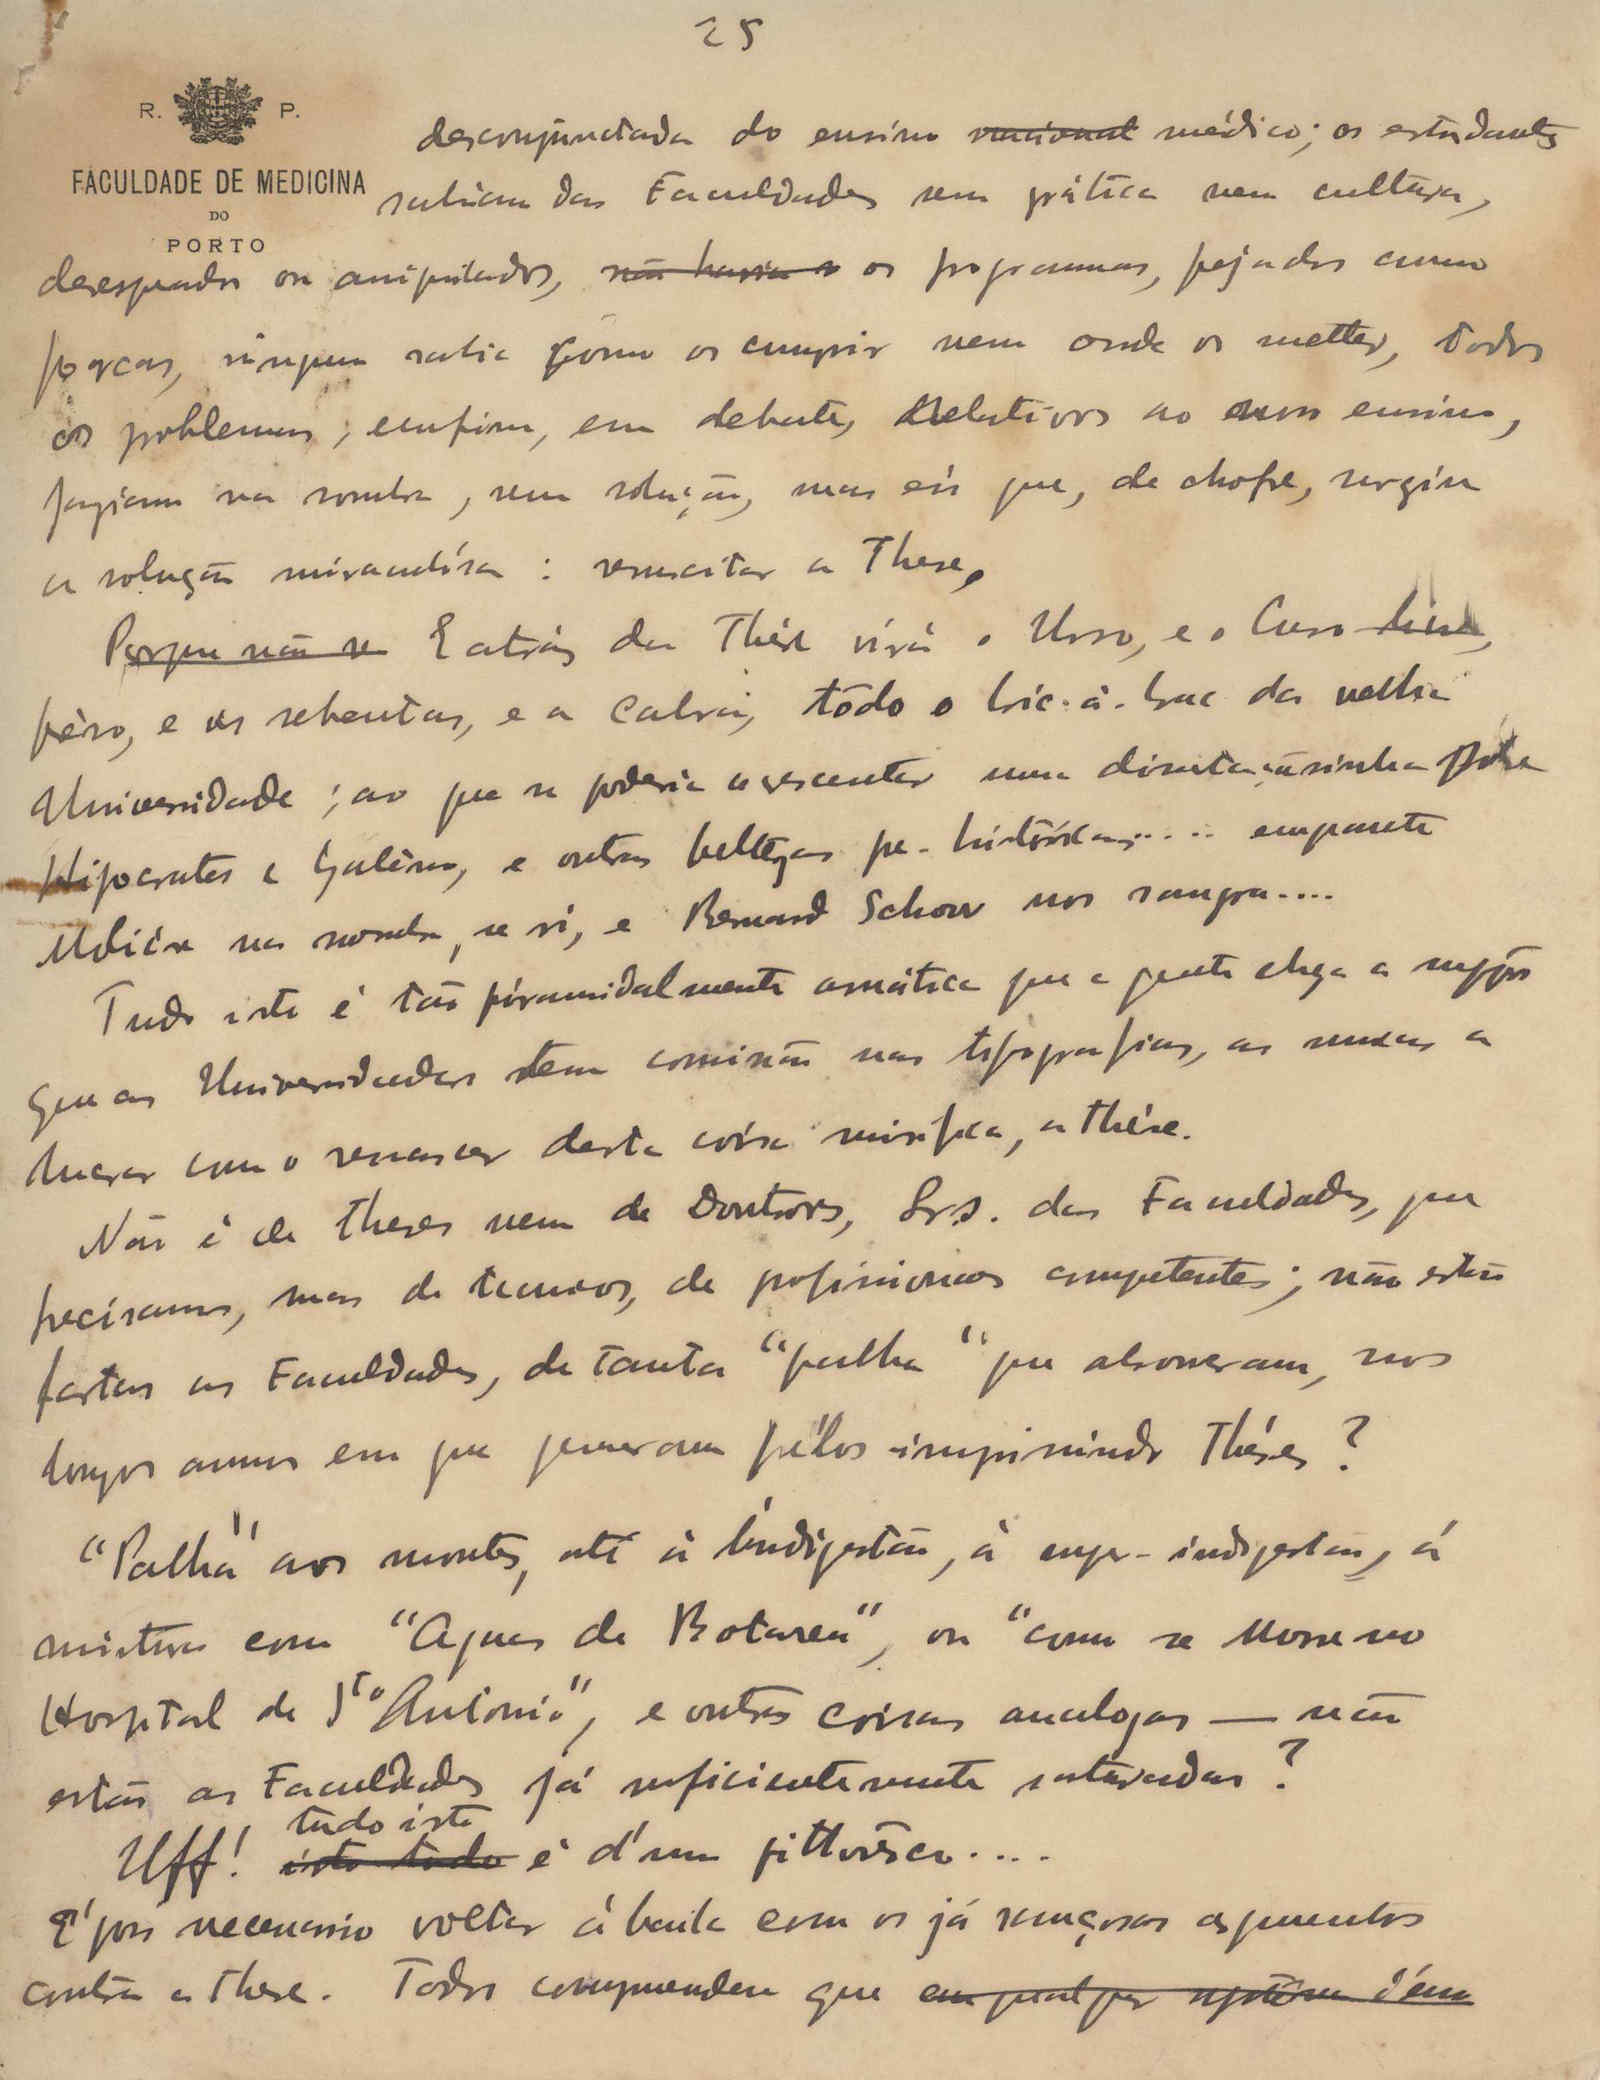 25
R. P.
FACULDADE DE MEDICINA
DO
PORTO
desconjunctada do ensino nacional médico; os estudantes
sahiam das Faculdades sem prática nem cultura,
desesperados ou os programmas, pejados como
porcas, ninguem sabia como os cumprir nem onde os metter, todos
os problemas, emfim, em debate, relativos ao ensino,
jaziam na sombra, sem solução, mas eis que, de chofre, surgiu
a solução : resuscitar a These,
Porque não se E atráz da Thése virá o Urso, e o Curso
e as sebentas, e a Cabra, tôdo o bric-à-brac da velha
Universidade; ao que se poderia acrescentar uma dissertaçãosinha sobre
Hipocrates e Galêno, e outras bellezas pre-históricas..... emquanto
Molière na sombra, se ri, e Bernard Schow nos sangra....
Tudo isto é tão piramidalmente que a gente chega a suppôr
que as Universidades tem comissão nas tipografias, as unicas a
lucrar com o renascer desta coisa mirifica, a thése.
Não é de theses nem de Doutores, Srs. das Faculdades, que
precisamos, mas de tecnicos, de profissionaes competentes; não estão
fartas as Faculdades, de tanta "palha" que absorveram, nos
longos annos em que gemeram prélos imprimindo Théses?
"Palha" aos montes, até à indigestão, à super-indigestão, á
mistura com "Aguas de ", ou "como se Morre no
Hospital de Sto Antonio", e outras coisas analogas — não
estão as Faculdades já suficientemente saturadas?
tudo isto
Uff! isto tudo é d'um pittorêsco....
E' pois necessario voltar á baila com os já rançosos argumentos
contra a these. Todos comprendem que em qualquer